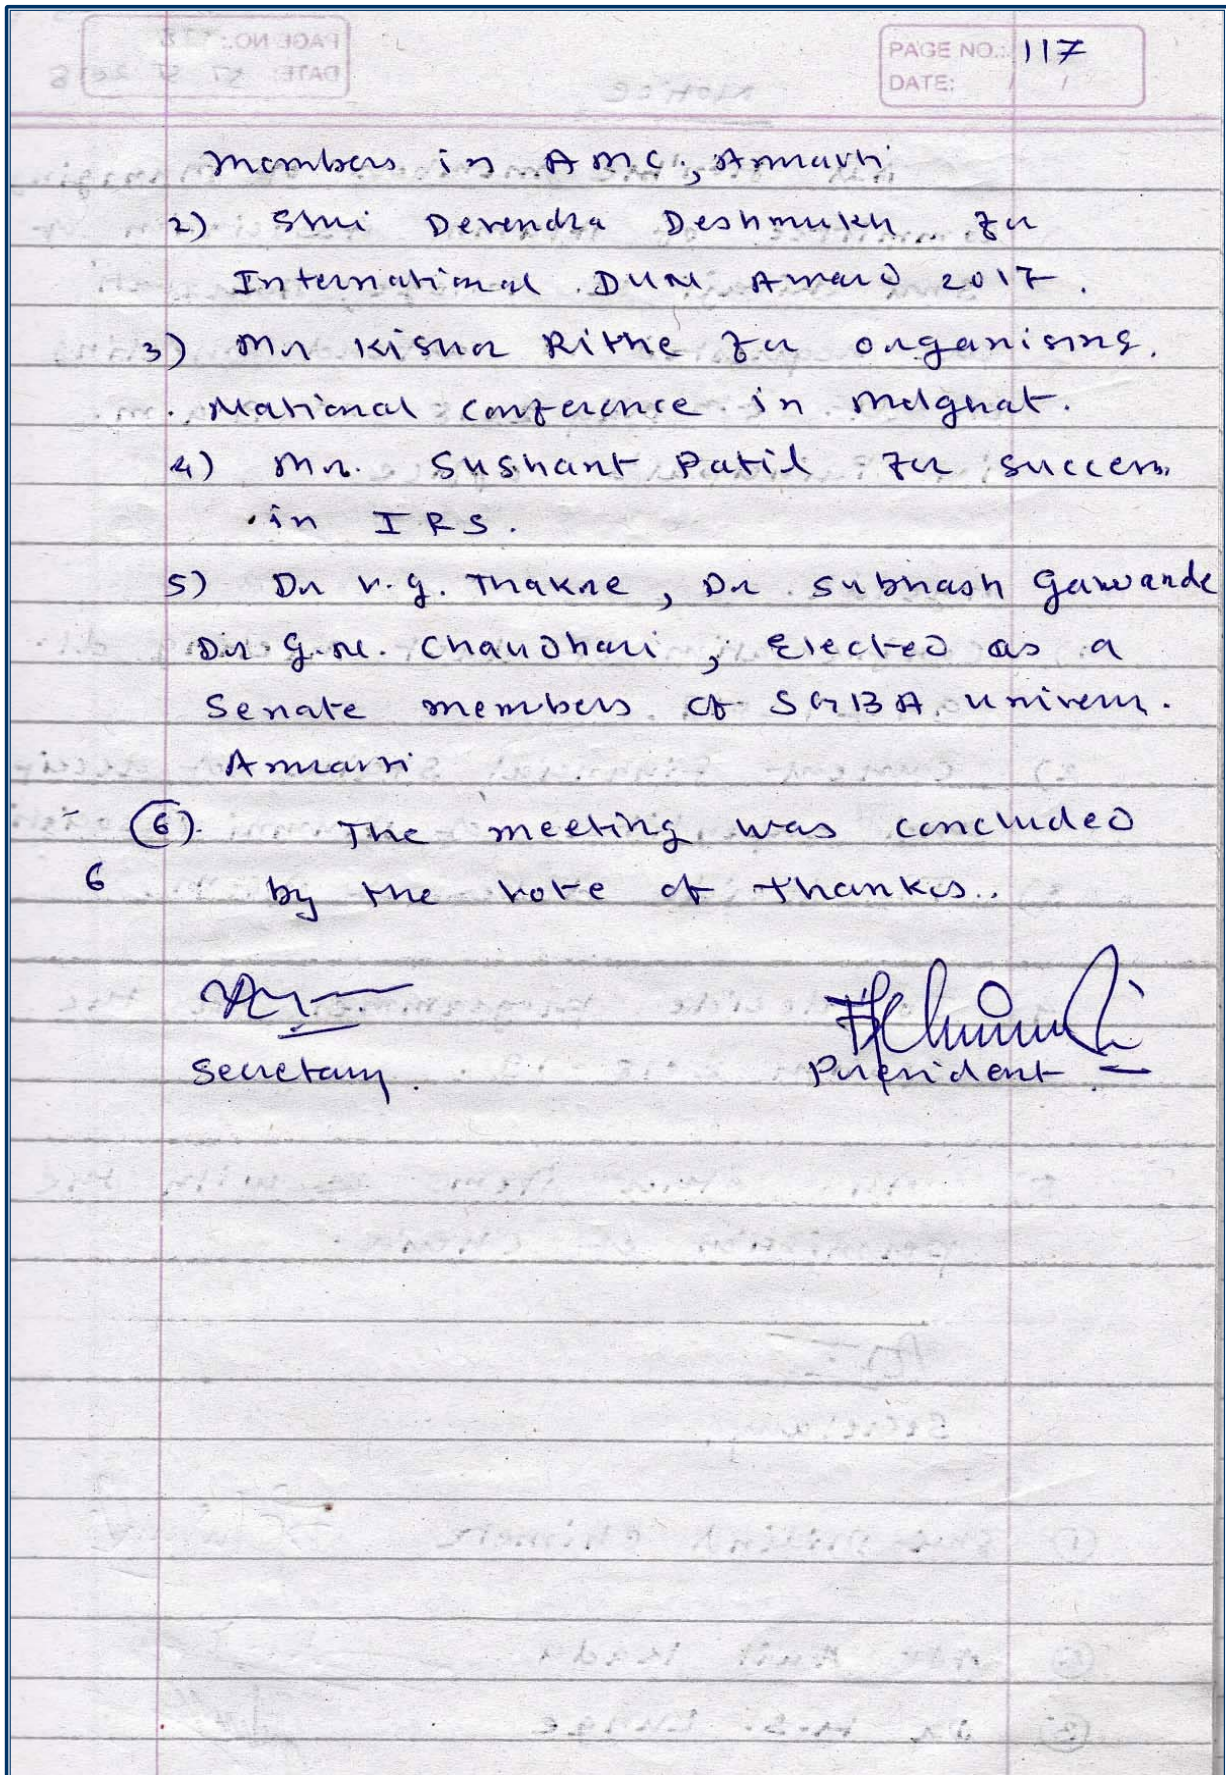 PAGE NO.: 117
DATE: / /
members in AMC, Amravti
2) Shri Devendra Deshmukh for
International DUM Award 2017.
3) Mr Kishor Rithe for organising
National conference in Melghat.
4) Mr. Sushant Patil for success
in IRS.
5) Dr V.G. Thakre, Dr. Subhash Gawande
Dr G.N. Chaudhari, Elected as a
Senate members of SGBA univers.
Amravti
(6). The meeting was concluded
6 by the vote of thanks..
Secretary.
President